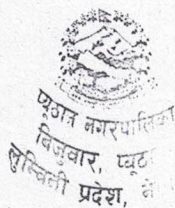 प्यूठान नगरपालिका
बिजुवार, प्यूठा
लुम्बिनी प्रदेश, ने